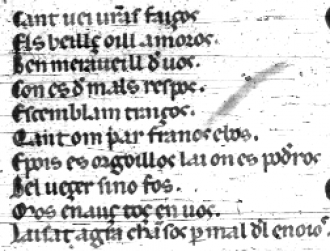 Cant uei urãs faiços
Els beillç oill amoros.
Ben meraueill đ uos.
Con es đ mals respos.
Escemblam traiços.
Cant om par francs ebos.
Epois es orgoillos lai on es pođros
Bel ueçer sino fos.
Mos enanç toç en uos.
Laisat agra chãsos ꝑ mal đl enoios